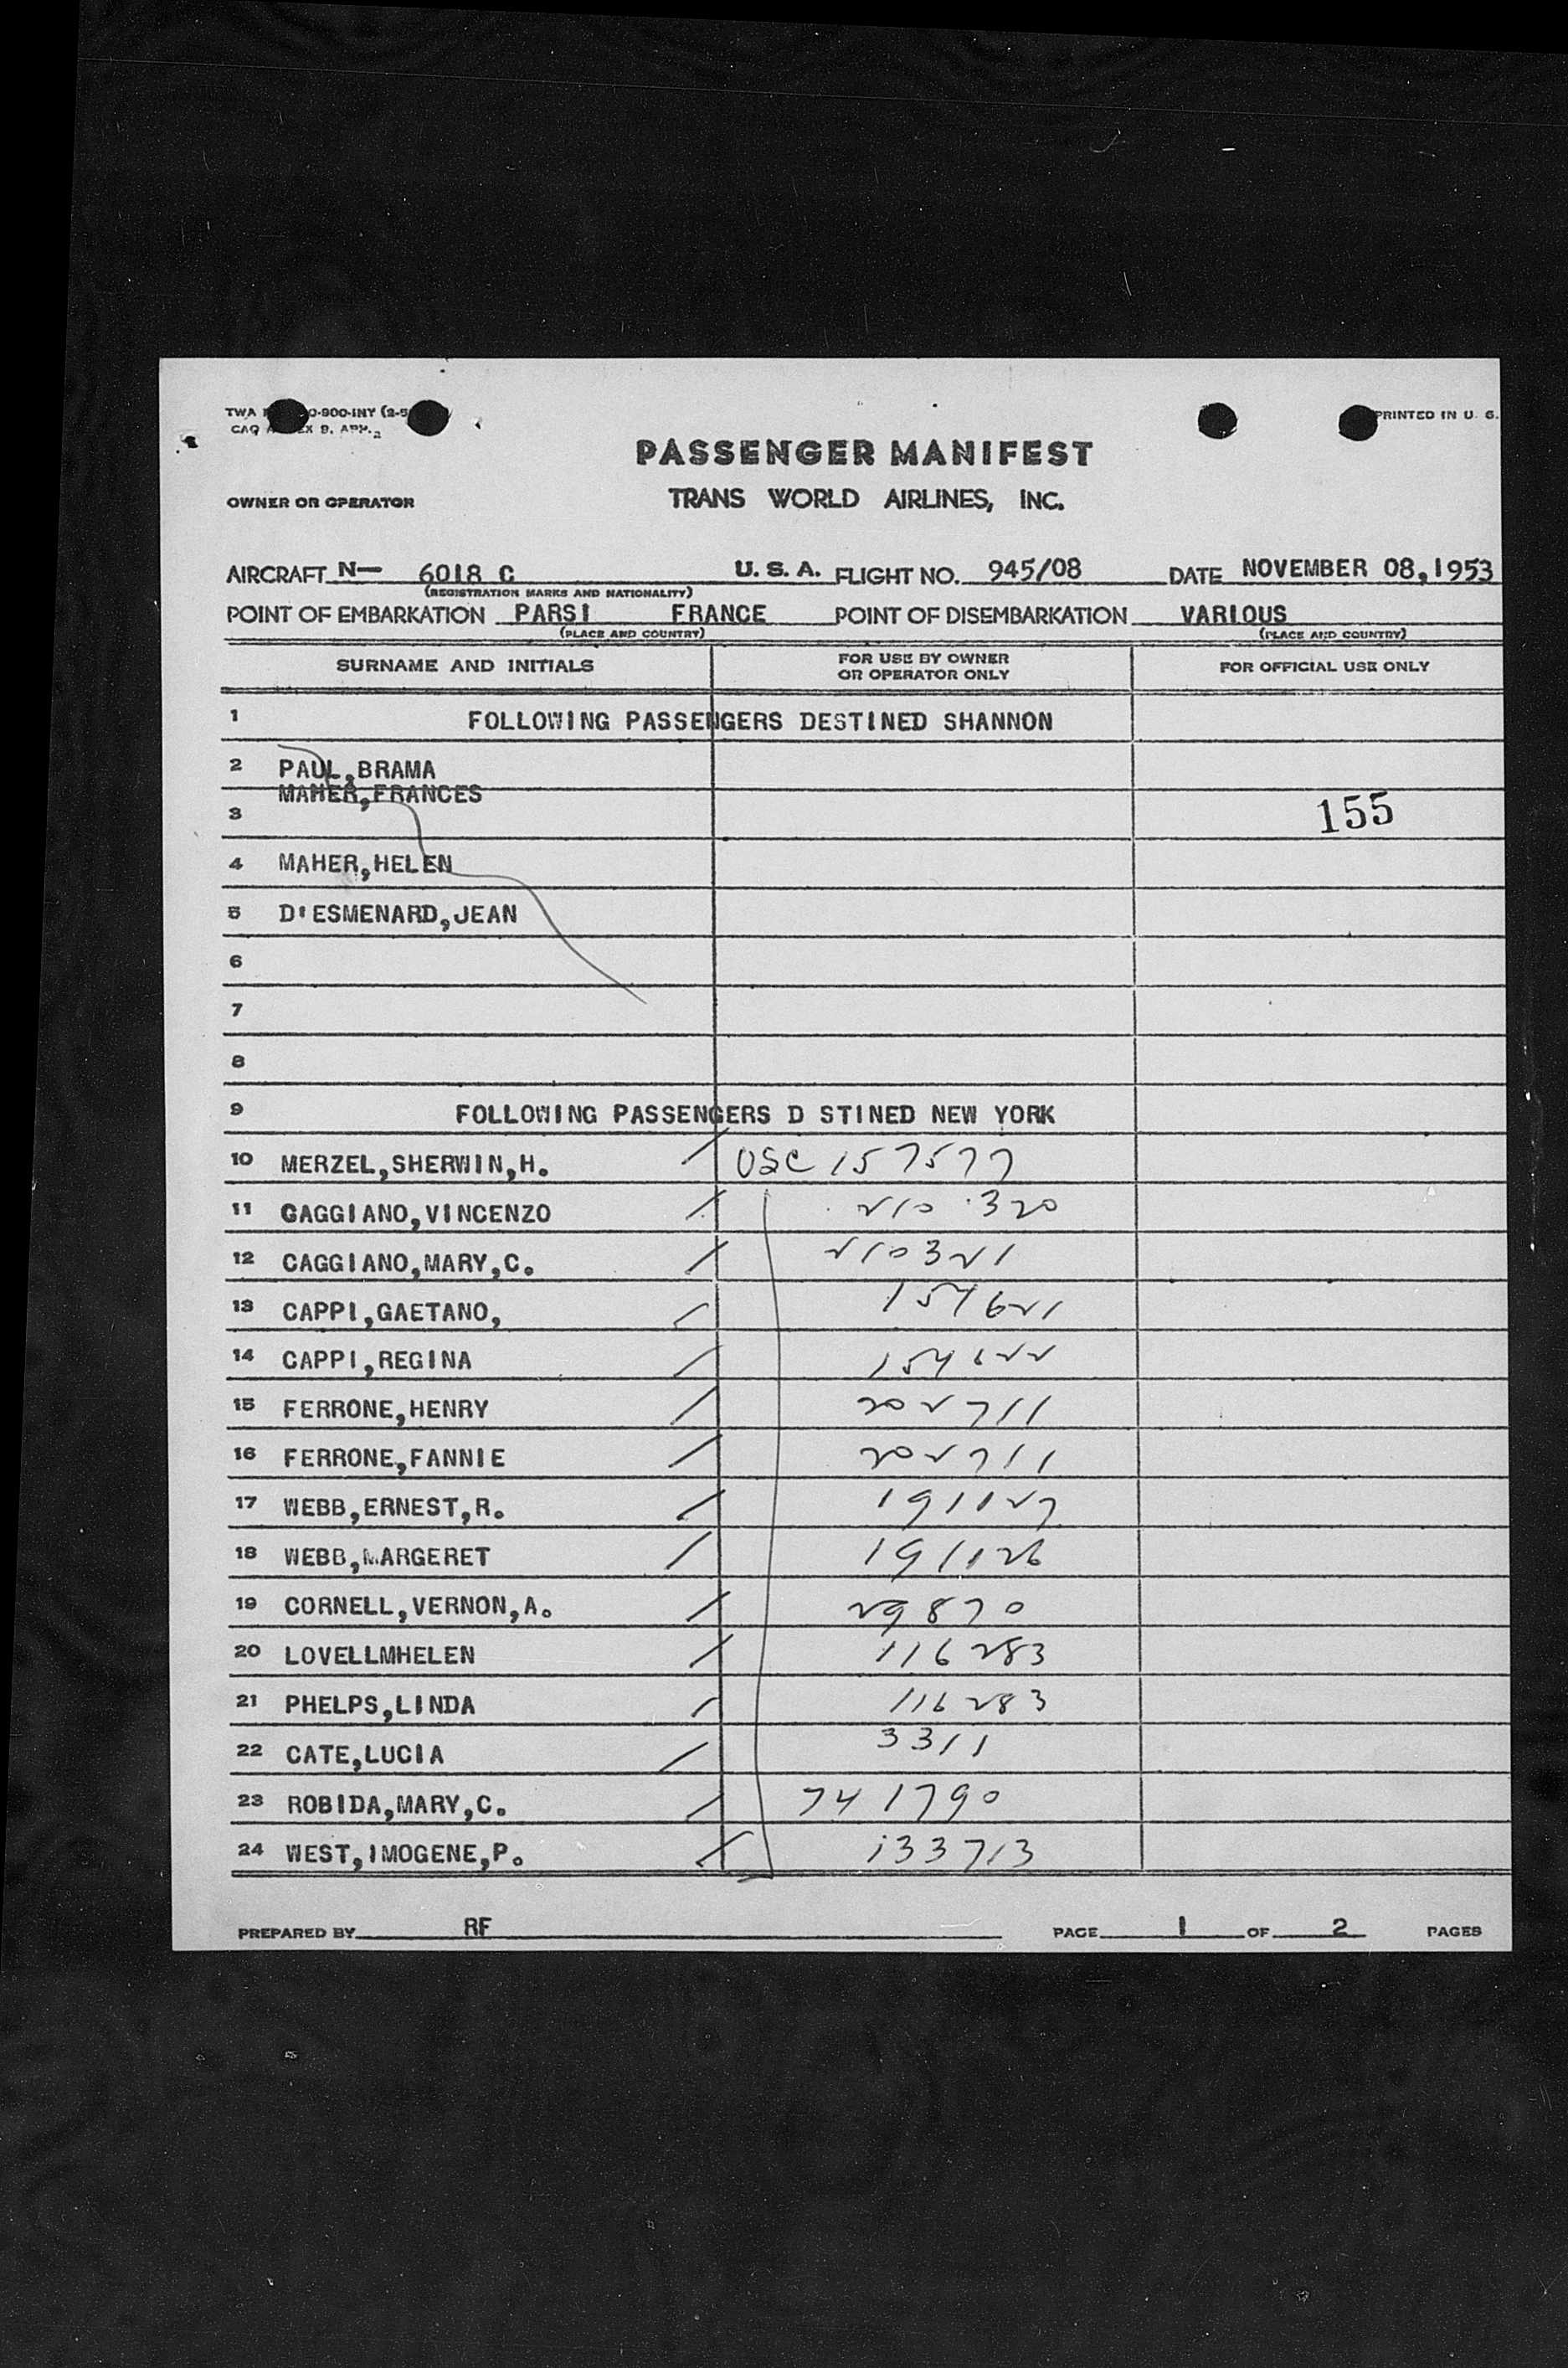 TWA 0-900-INY (2-5
CAO
PRINTED IN U. S.
PASSENGER MANIFEST
OWNER OR OPERATOR TRANS WORLD AIRLINES, INC.
AIRCRAFT N— 6018 C U. S. A. FLIGHT NO. 945/08 DATE NOVEMBER 08,1953
(REGISTRATION MARKS AND NATIONALITY)
POINT OF EMBARKATION PARSI FRANCE POINT OF DISEMBARKATION VARIOUS
(PLACE AND COUNTRY) (PLACE AND COUNTRY)
SURNAME AND INITIALS FOR USE BY OWNER OR OPERATOR ONLY FOR OFFICIAL USE ONLY
1 FOLLOWING PASSENGERS DESTINED SHANNON
2 PAUL,BRAMA
MAHER,FRANCES
3 155
4 MAHER,HELEN
5 D'ESMENARD,JEAN
6
7
8
9 FOLLOWING PASSENGERS D STINED NEW YORK
10 MERZEL,SHERWIN,H. / USC 157577
11 CAGGIANO,VINCENZO / 210320
12 CAGGIANO,MARY,C. / 210321
13 CAPPI,GAETANO, / 154621
14 CAPPI,REGINA / 154622
15 FERRONE,HENRY / 202711
16 FERRONE,FANNIE / 202711
17 WEBB,ERNEST,R. / 191127
18 WEBB,MARGERET / 191126
19 CORNELL,VERNON,A. / 29870
20 LOVELLMHELEN / 116283
21 PHELPS,LINDA / 116283
22 CATE,LUCIA / 3311
23 ROBIDA,MARY,C. / 741790
24 WEST,IMOGENE,P. / 133713
PREPARED BY RF PAGE 1 OF 2 PAGES